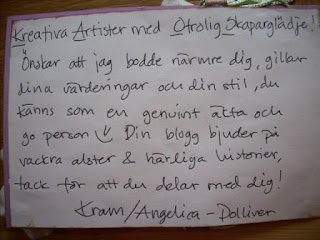 Kreativa Artister med Otrolig Skaparglädje!
Önskar att jag bodde närmre dig, gillar
dina värderingar och din stil, du
känns som en genuint äkta och
go person Din blogg bjuder på
vackra alster & härliga historier,
tack för att du delar med dig!
Kram/Angelica - Dolliver